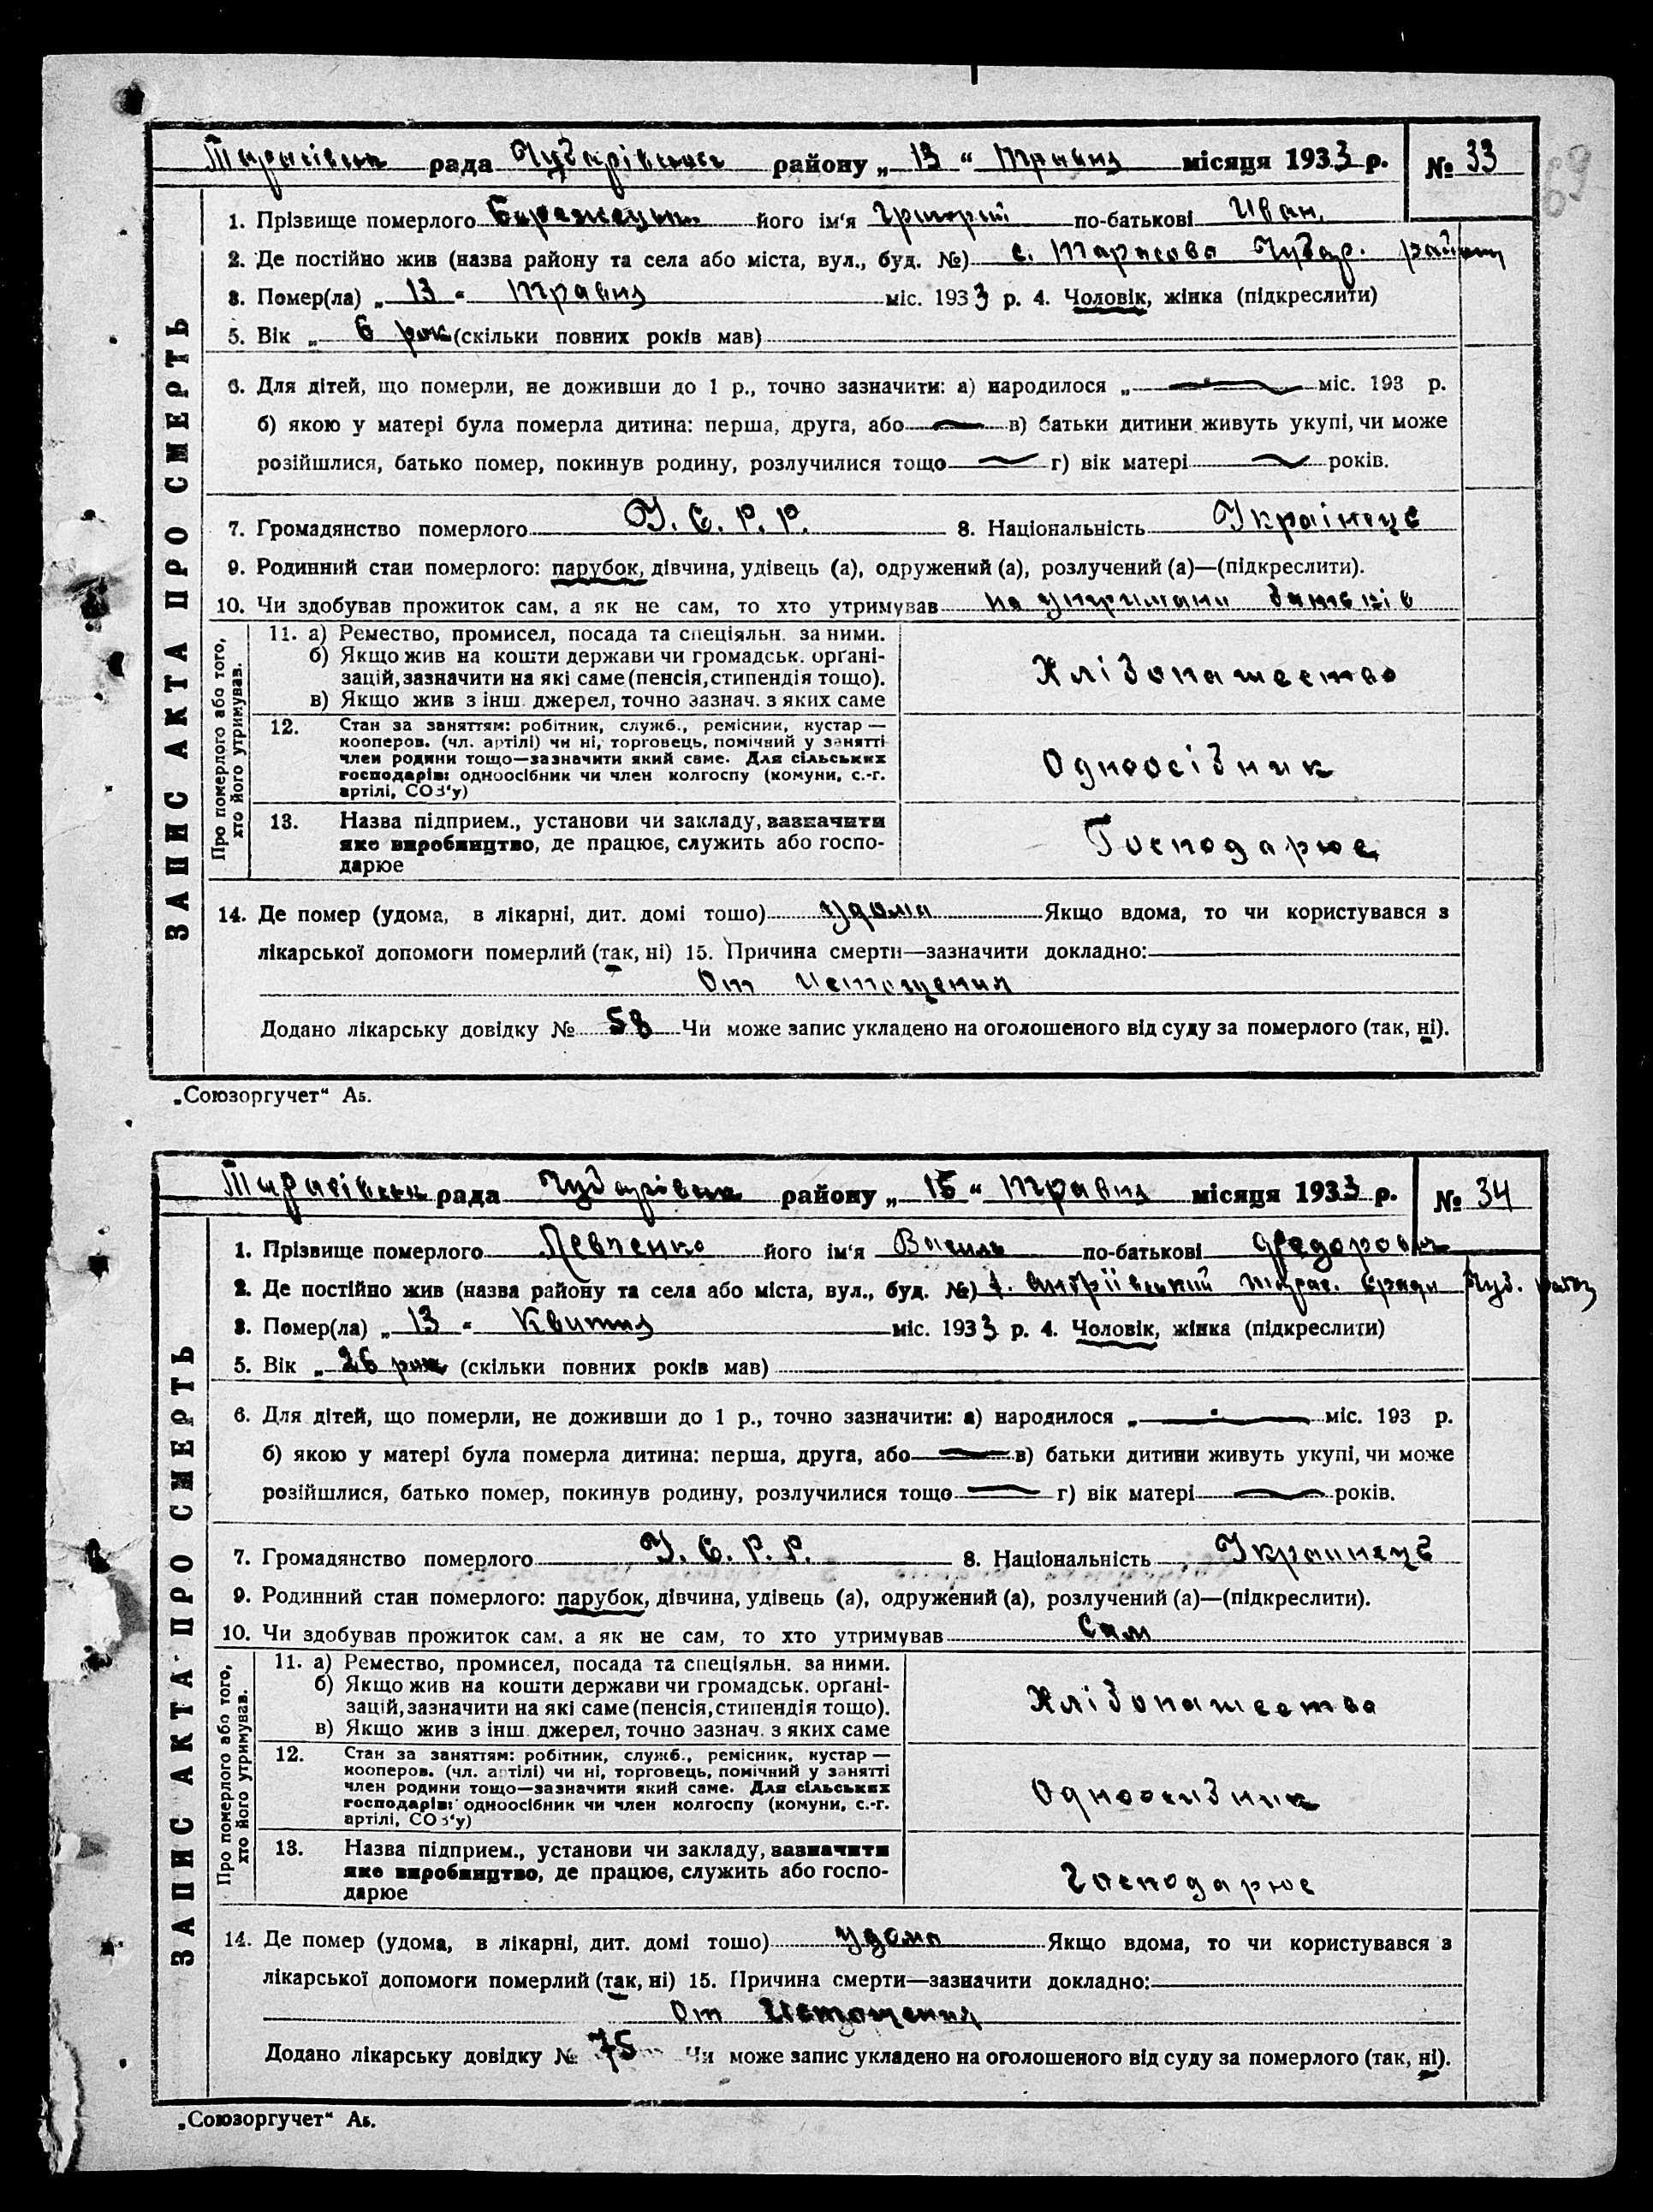 Тарасівська рада Чубарівська району „ 13 “ травня місяця 1933 р. № 33
69
ЗАПИС АКТА ПРО СМЕРТЬ
1. Прізвище померлого його ім'я Григорій по-батькові Иван.
2. Де постійно жив (назва району та села або міста, вул., буд. №) с. Тарасова Чубар. району
3. Помер(ла) „ 13 “ травня міс. 1933 р. 4. Чоловік, жінка (підкреслити)
5. Вік „ 6 рок (скільки повних років мав)
6. Для дітей, що померли, не доживши до 1 р., точно зазначити: а) народилося „ міс. 193 р.
б) якою у матері була померла дитина: перша, друга, або в) батьки дитини живуть укупі, чи може
розійшлися, батько помер, покинув родину, розлучилися тощо г) вік матері років.
7. Громадянство померлого У. С. Р. Р. 8. Національність Українець
9. Родинний стан померлого: парубок, дівчина, удівець (а), одружений (а), розлучений (а)—(підкреслити).
10. Чи здобував прожиток сам, а як не сам, то хто утримував на утримани батьків
Про померлого або того, хто його утримував.
11. а) Ремество, промисел, посада та спеціяльн. за ними.
б) Якщо жив на кошти держави чи громадськ. орґані-
зацій, зазначити на які саме (пенсія, стипендія тощо).
в) Якщо жив з інш. джерел, точно зазнач. з яких саме
Хлібопашество
12. Стан за заняттям: робітник, служб., ремісник, кустар —
кооперов. (чл. артілі) чи ні, торговець, помічний у занятті
член родини тощо—зазначити який саме. Для сільських
господарів: одноосібник чи член колгоспу (комуни, с.-г.
артілі, СОЗ'у)
Одноосібник
13. Назва підприєм., установи чи закладу, зазначити
яке виробництво, де працює, служить або госпо-
дарює
Господарює
14. Де помер (удома, в лікарні, дит. домі тошо) удома Якщо вдома, то чи користувався з
лікарської допомоги померлий (так, ні) 15. Причина смерти—зазначити докладно:
От Истощения
Додано лікарську довідку № 58 Чи може запис укладено на оголошеного від суду за померлого (так, ні).
„Союзоргучет“ А5.
Тарасівська рада Чубарівська району „ 15 “ травня місяця 1933 р. № 34
ЗАПИС АКТА ПРО СМЕРТЬ
1. Прізвище померлого Левченко його ім'я Василь по-батькові Федорович
2. Де постійно жив (назва району та села або міста, вул., буд. №) Тарас. Чуб. району
3. Помер(ла) „ 13 “ Квитня міс. 1933 р. 4. Чоловік, жінка (підкреслити)
5. Вік „ 26 рок (скільки повних років мав)
6. Для дітей, що померли, не доживши до 1 р., точно зазначити: а) народилося „ міс. 193 р.
б) якою у матері була померла дитина: перша, друга, або в) батьки дитини живуть укупі, чи може
розійшлися, батько помер, покинув родину, розлучилися тощо г) вік матері років.
7. Громадянство померлого У. С. Р. Р. 8. Національність Украинець
9. Родинний стан померлого: парубок, дівчина, удівець (а), одружений (а), розлучений (а)—(підкреслити).
10. Чи здобував прожиток сам, а як не сам, то хто утримував Сам
Про померлого або того, хто його утримував.
11. а) Ремество, промисел, посада та спеціяльн. за ними.
б) Якщо жив на кошти держави чи громадськ. орґані-
зацій, зазначити на які саме (пенсія, стипендія тощо).
в) Якщо жив з інш. джерел, точно зазнач. з яких саме
Хлібопашество
12. Стан за заняттям: робітник, служб., ремісник, кустар —
кооперов. (чл. артілі) чи ні, торговець, помічний у занятті
член родини тощо—зазначити який саме. Для сільських
господарів: одноосібник чи член колгоспу (комуни, с.-г.
артілі, СОЗ'у)
Одноосибник
13. Назва підприєм., установи чи закладу, зазначити
яке виробництво, де працює, служить або госпо-
дарює
Господарює
14. Де помер (удома, в лікарні, дит. домі тошо) удома Якщо вдома, то чи користувався з
лікарської допомоги померлий (так, ні) 15. Причина смерти—зазначити докладно:
От Истощения
Додано лікарську довідку № 75 Чи може запис укладено на оголошеного від суду за померлого (так, ні).
„Союзоргучет“ А5.